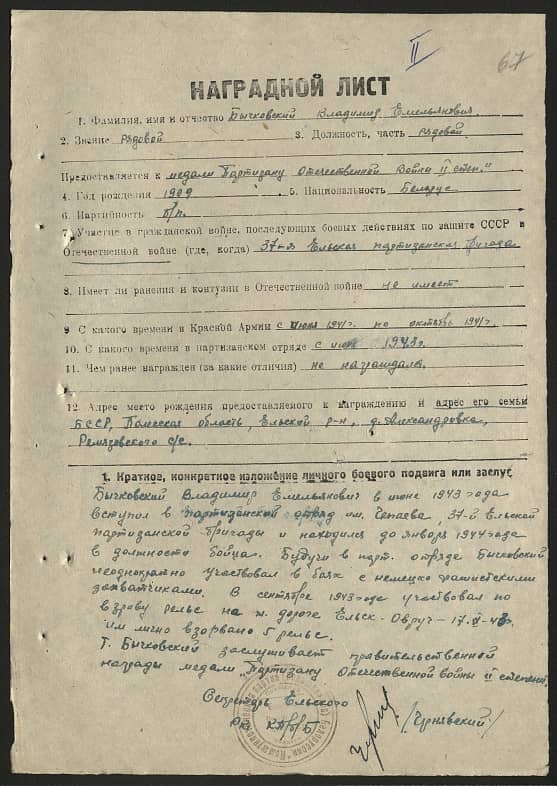 II
67
НАГРАДНОЙ ЛИСТ
1. Фамилия, имя и отчество Бычковский Владимир Емельянович.
2. Звание рядовой 3. Должность, часть рядовой.
Предоставляется к медали "Партизану Отечественной Войны II степ."
4. Год рождения 1909 5. Национальность Белорус
6. Партийность б/п.
7. Участие в гражданской войне, последующих боевых действиях по защите СССР и
Отечественной войне (где, когда) 37-я Ельская партизанская бригада
8. Имеет ли ранения и контузии в Отечественной войне не имеет
9 С какого времени в Красной Армии с июля 1941г. по октябрь 1941г.
10. С какого времени в партизанском отряде с июня 1943г.
11. Чем ранее награжден (за какие отличия) не награждался.
12 Адрес место рождения предоставляемого к награждению и адрес его семьи
БССР, Полесская область, Ельский р-н, д. Александровка,
Ремезовского с/с.
1. Краткое, конкретное изложение личного боевого подвига или заслуг
Бычковский Владимир Емельянович в июне 1943 года
вступил в партизанский отряд им. Чапаева, 37-й Ельской
партизанской бригады и находился до января 1944 года
в должности бойца. Будучи в парт. отряде Бычковский
неоднократно участвовал в боях с немецко фашистскими
захватчиками. В сентябре 1943 года участвовал по
взрыву рельс на ж. дороге Ельск-Овруч-17.IX-43г.
им лично взорвано 5 рельс.
Т. Бычковский заслуживает правительственной
награды медали "Партизану Отечественной войны II степени".
Секретарь Ельского
РК КП(б)Б /Чернявский/